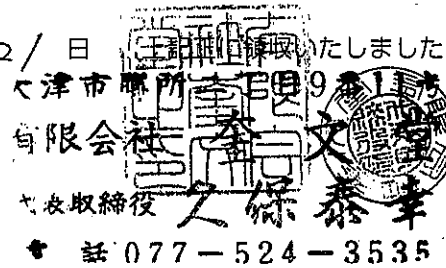 21日 上記正に領収いたしました
大津市膳所一丁目9番11号
有限会社 奎文堂
代表取締役 久保泰幸
電話 077-524-3535